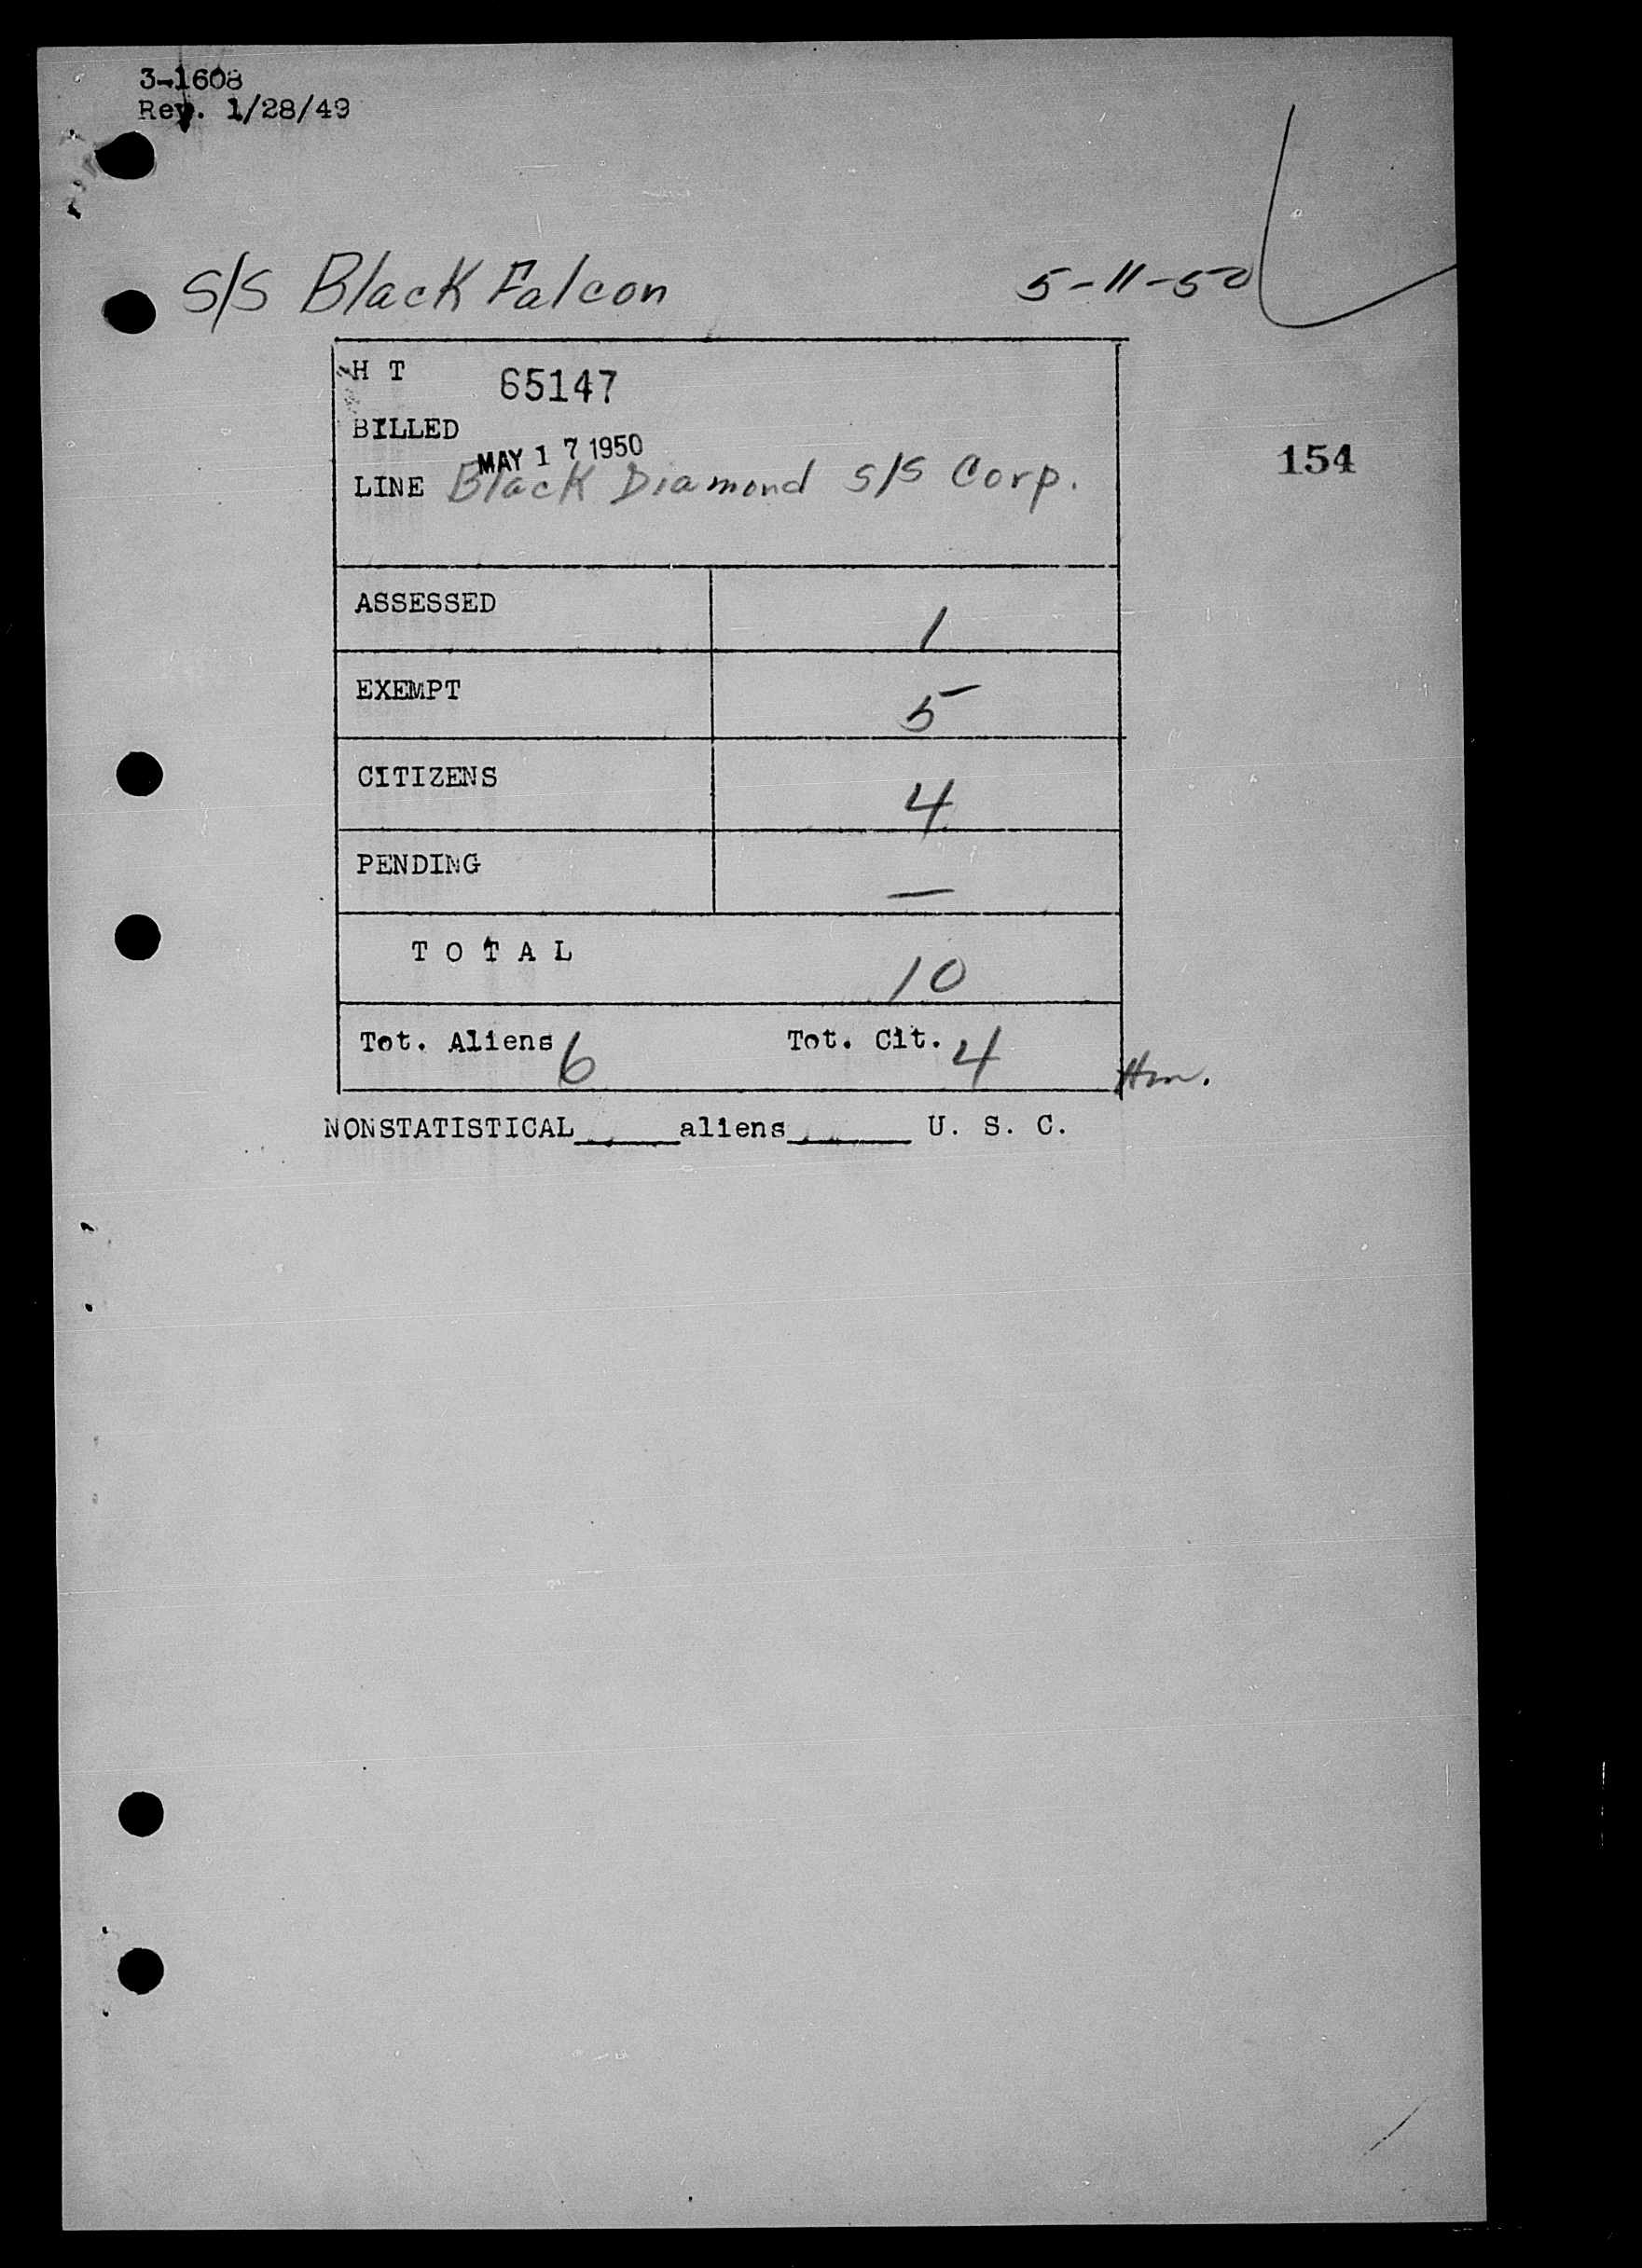 3-1608
Rev. 1/28/49
S/S Black Falcon 5-11-50
H T 65147
BILLED
MAY 17 1950
154
LINE Black Diamond S/S Corp.
ASSESSED 1
EXEMPT 5
CITIZENS 4
PENDING —
T O T A L 10
Tot. Aliens 6 Tot. Cit. 4
NONSTATISTICAL_____aliens______ U. S. C.